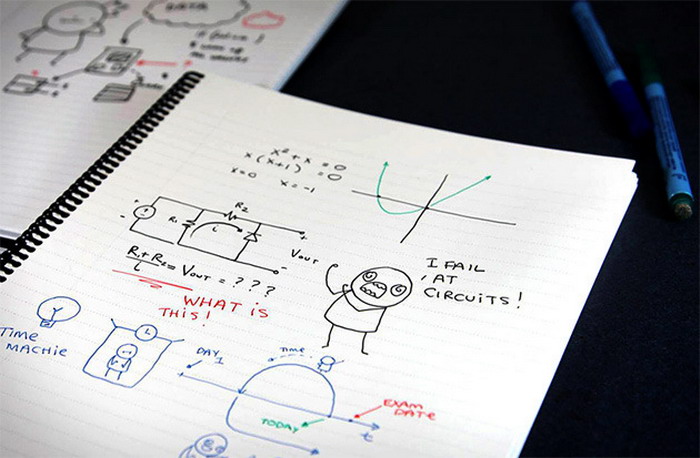 DATA
x² + x = 0
x(x+1) = 0
x=0 x=-1
R2
+
R1
i
+
-
VOUT
-
R1 + R2 / i = VOUT = ? ? ?
WHAT IS
THIS!
I FAIL
AT
CIRCUITS!
TIME
MACHIE
DAY 1
TIME
TODAY
EXAM
DATE
t